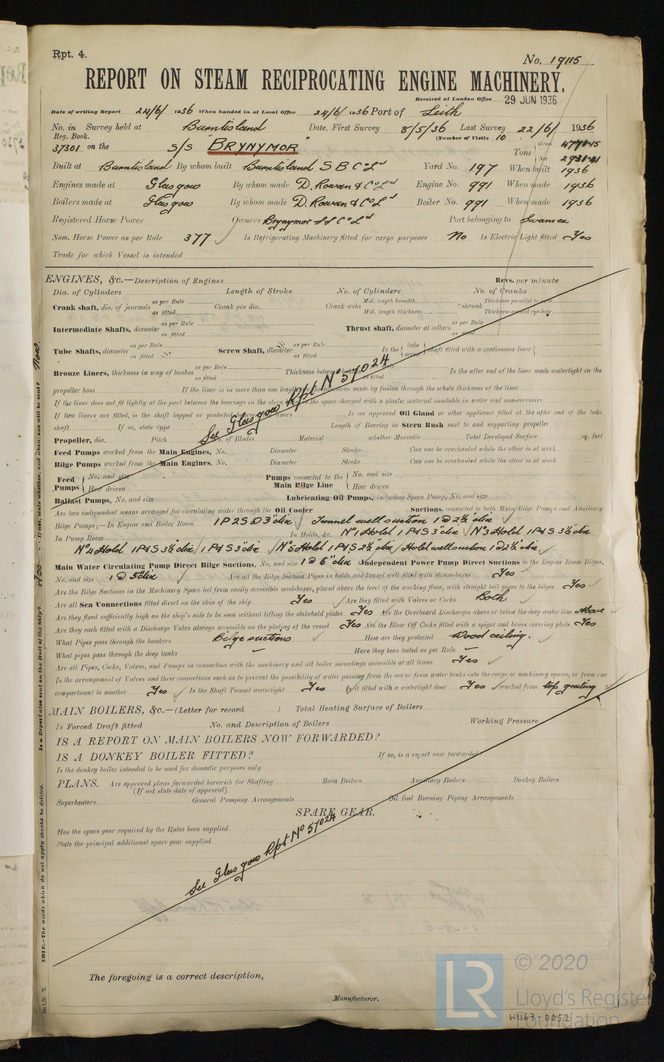 Rpt. 4.
No. 19115
REPORT ON STEAM RECIPROCATING ENGINE MACHINERY.
Received at London Office 29 JUN 1936
Date of writing Report 24/6/ 1936 When handed in at Local Office 24/6/ 1936 Port of Leith
No. in Survey held at Burntisland Date, First Survey 8/5/36 Last Survey 22/6/ 1936
Reg. Book. (Number of Visits 10
37301 on the S/S "BRYNYMOR" Tons
Built at Burntisland By whom built Burntisland S B Co Ld Yard No. 197 When built 1936
Engines made at Glasgow By whom made D. Rowan & Co Ld Engine No. 991 When made 1936
Boilers made at Glasgow By whom made D. Rowan & Co Ld Boiler No. 991 When made 1936
Registered Horse Power Owners Brynymor SS Co Ld Port belonging to Swansea
Nom. Horse Power as per Rule 377 Is Refrigerating Machinery fitted for cargo purposes No Is Electric Light fitted Yes
Trade for which Vessel is intended
ENGINES, &c.—Description of Engines Revs. per minute
Dia. of Cylinders Length of Stroke No. of Cylinders No. of Cranks
Crank shaft, dia. of journals as per Rule as fitted Crank pin dia. Crank webs Mid. length breadth Mid. length thickness shrunk
Intermediate Shafts, diameter as per Rule as fitted Thrust shaft, diameter at collars as per Rule
Tube Shafts, diameter as per Rule as fitted Screw Shaft, diameter as per Rule as fitted Is the tube screw shaft fitted with a continuous liner
Bronze Liners, thickness in way of bushes as per Rule as fitted Thickness between Is the after end of the liner made watertight in the
propeller boss If the liner is in more than one length made by fusion through the whole thickness of the liner
See Glasgow Rpt No 57024
If the liner does not fit tightly at the part between the bearings in the stern the space charged with a plastic material insoluble in water and non-corrosive
If two liners are fitted, is the shaft lapped or protected liners Is an approved Oil Gland or other appliance fitted at the after end of the tube
shaft If so, state type Length of Bearing in Stern Bush next to and supporting propeller
Propeller, dia. Pitch No. of Blades Material whether Moveable Total Developed Surface sq. feet
Feed Pumps worked from the Main Engines, No. Diameter Stroke Can one be overhauled while the other is at work
Bilge Pumps worked from the Main Engines, No. Diameter Stroke Can one be overhauled while the other is at work
Feed Pumps No. and size How driven Pumps connected to the Main Bilge Line No. and size How driven
Ballast Pumps, No. and size Lubricating Oil Pumps, including Spare Pump, No. and size
Are two independent means arranged for circulating water through the Oil Cooler Suctions, connected to both Main Bilge Pumps and Auxiliary
Bilge Pumps;—In Engine and Boiler Room 1P 2S @ 3" dia Tunnel well suction 1 @ 2½" dia
In Pump Room In Holds, &c. No 1 Hold 1P&S 3" dia No 3 Hold 1P&S 3½" dia
No 4 Hold 1P&S 3½" dia 1P&S 3" dia No 5 Hold 1P&S 2½" dia Hold well suction 1 @ 2½" dia
Main Water Circulating Pump Direct Bilge Suctions, No. and size 1 @ 8" dia Independent Power Pump Direct Suctions to the Engine Room Bilges,
No. and size 1 @ 5" dia Are all the Bilge Suction Pipes in holds and tunnel well fitted with strum-boxes Yes
Are the Bilge Suctions in the Machinery Space led from easily accessible mud-boxes, placed above the level of the working floor, with straight tail pipes to the bilges Yes
Are all Sea Connections fitted direct on the skin of the ship Yes Are they fitted with Valves or Cocks Both
Are they fixed sufficiently high on the ship's side to be seen without lifting the stokehold plates Yes Are the Overboard Discharges above or below the deep water line Above
Are they each fitted with a Discharge Valve always accessible on the plating of the vessel Yes Are the Blow Off Cocks fitted with a spigot and brass covering plate Yes
What Pipes pass through the bunkers Bilge suctions How are they protected Wood ceiling.
What pipes pass through the deep tanks – Have they been tested as per Rule –
Are all Pipes, Cocks, Valves, and Pumps in connection with the machinery and all boiler mountings accessible at all times Yes
Is the arrangement of Valves and their connections such as to prevent the possibility of water passing from the sea or from water tanks into the cargo or machinery spaces, or from one
compartment to another Yes Is the Shaft Tunnel watertight Yes Is it fitted with a watertight door Yes worked from top grating
MAIN BOILERS, &c.—(Letter for record ) Total Heating Surface of Boilers
Is Forced Draft fitted No. and Description of Boilers Working Pressure
IS A REPORT ON MAIN BOILERS NOW FORWARDED?
IS A DONKEY BOILER FITTED? If so, is a report now forwarded?
Is the donkey boiler intended to be used for domestic purposes only
PLANS. Are approved plans forwarded herewith for Shafting Main Boilers Auxiliary Boilers Donkey Boilers
(If not state date of approval)
Superheaters General Pumping Arrangements Oil fuel Burning Piping Arrangements
SPARE GEAR.
Has the spare gear required by the Rules been supplied
State the principal additional spare gear supplied
See Glasgow Rpt No 57024
The foregoing is a correct description,
Manufacturer.
© 2020
LR
Lloyd's Register
Foundation
W1167-0052